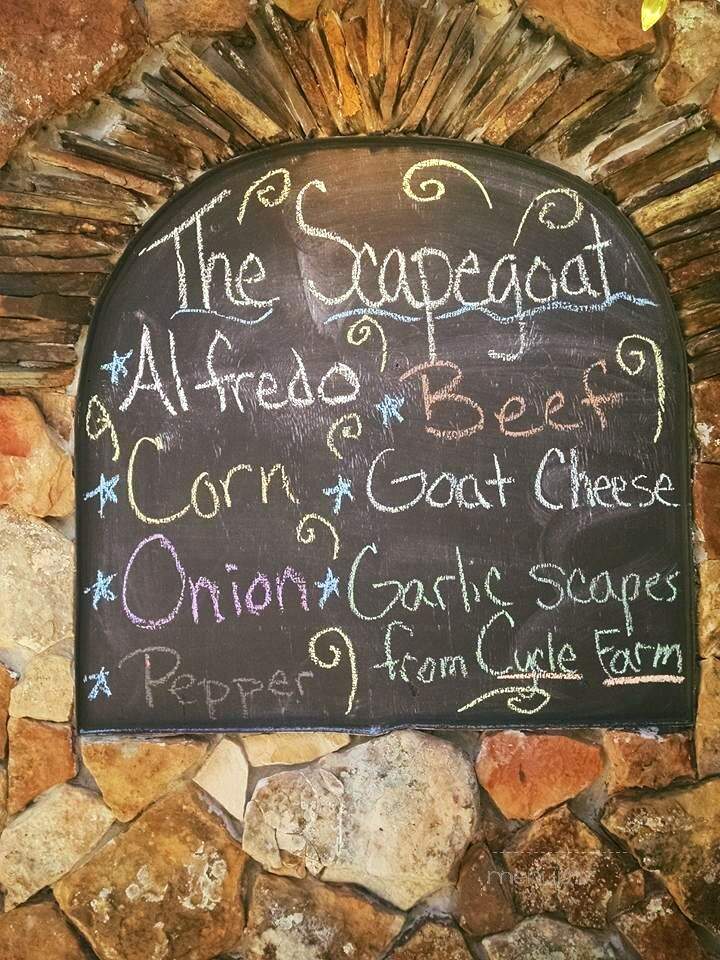 The Scapegoat
Alfredo
Beef
Corn
Goat Cheese
Onion
Garlic scapes
from Cycle Farm
Pepper